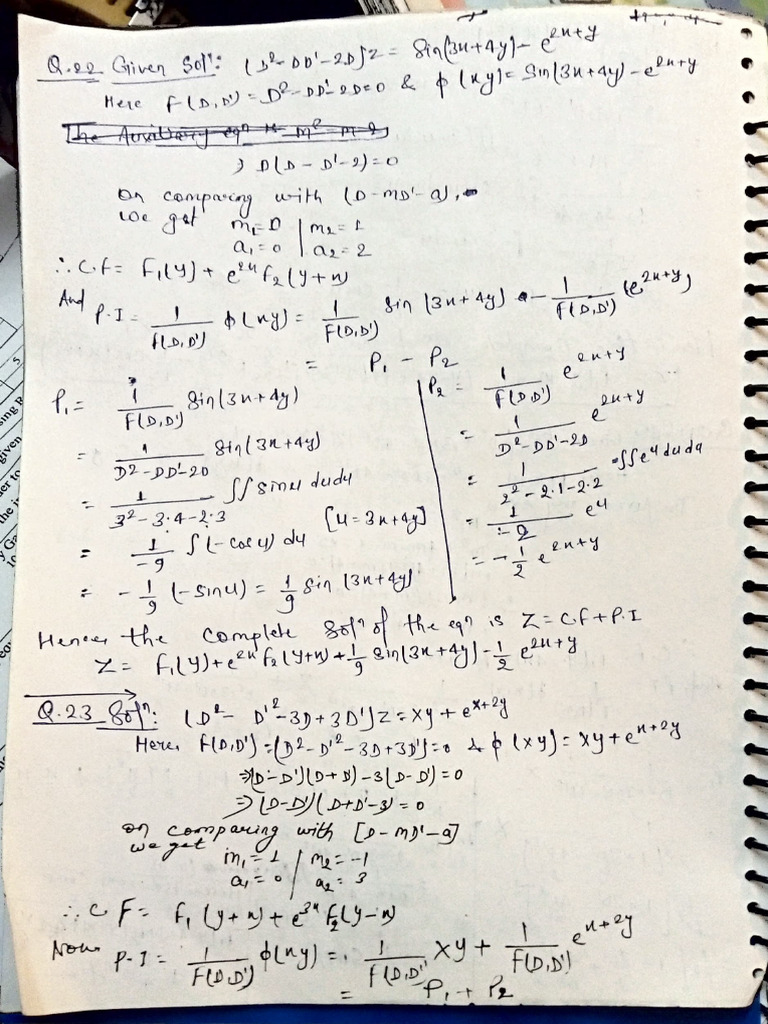 Q.22 Given Solⁿ: (D²-DD'-2D)Z = Sin(3x+4y) - e^{2x+y}
Here F(D,D') = D²-DD'-2D=0 & ϕ(xy)= Sin(3x+4y) - e^{2x+y}
The Auxiliary eqⁿ is m²-m-2
⇒ D(D-D'-2)=0
on comparing with (D-mD'-a),
we get m₁=0 | m₂=1
a₁=0 | a₂=2
∴ C.F = F₁(y) + e^{2x} f₂(y+x)
And P.I = 1/F(D,D') ϕ(xy) = 1/F(D,D') sin(3x+4y) - 1/F(D,D') (e^{2x+y})
= P₁ - P₂
P₁ = 1/F(D,D') Sin(3x+4y)
= 1/D²-DD'-2D Sin(3x+4y)
= 1/3²-3·4-2·3 ∬ Sinu dudu
[u=3x+4y]
= 1/-9 ∫(-cosu) du
= -1/9 (-sinu) = 1/9 Sin(3x+4y)
P₂ = 1/F(D,D') e^{2x+y}
= 1/D²-DD'-2D e^{2x+y}
= 1/2²-2·1-2·2 ∬e^u du du
= 1/-2 e^u
= -1/2 e^{2x+y}
Hence the complete Solⁿ of the eqⁿ is Z=C.F+P.I
Z= F₁(y)+e^{2x} f₂(y+x)+1/9 Sin(3x+4y)-1/2 e^{2x+y}
Q.23 Solⁿ: (D²-D'²-3D+3D')Z=xy+e^{x+2y}
Here, F(D,D')=(D²-D'²-3D+3D')=0 & ϕ(xy)=xy+e^{x+2y}
⇒(D-D')(D+D')-3(D-D')=0
⇒(D-D')(D+D'-3)=0
on comparing with [D-mD'-a]
we get
m₁=1 | m₂=-1
a₁=0 | a₂=3
∴ C F = f₁(y+x)+e^{3x} f₂(y-x)
Now P.I = 1/F(D,D') ϕ(xy) = 1/F(D,D') xy + 1/F(D,D') e^{x+2y}
= P₁+P₂